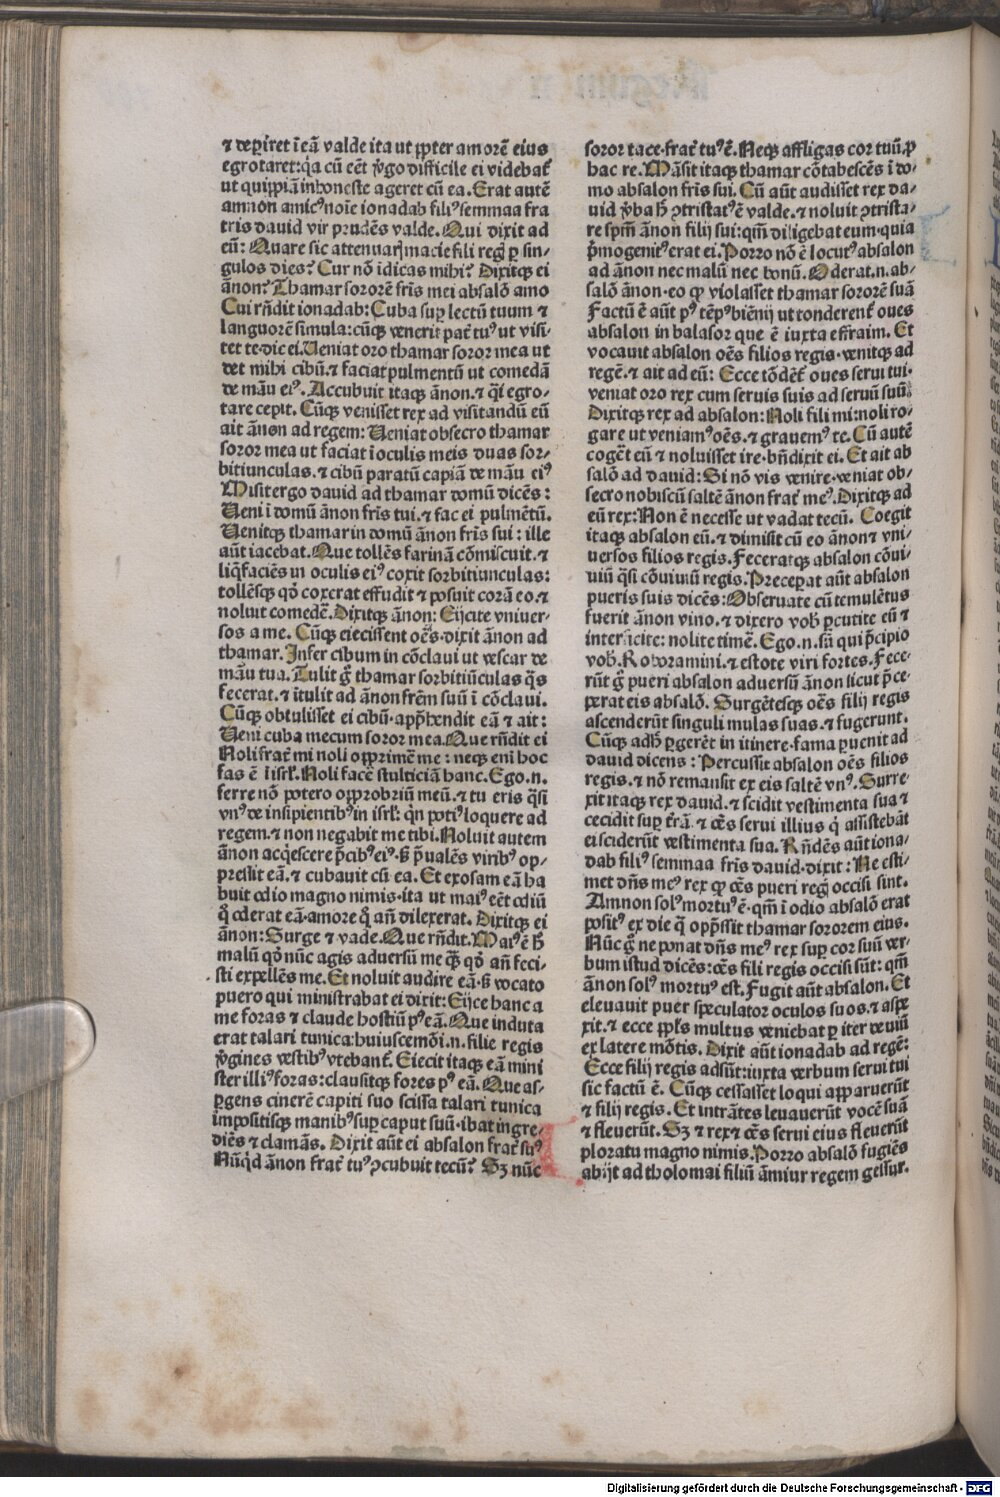 ⁊ deꝑiret ĩ eã valde ita ut ꝓpter amorẽ eius
egrotaret: q̃a cũ eẽt v̾go difficile ei videbat̃
ut quippiã inhoneste ageret cũ ea. Erat autẽ
amnon amicꝰ noĩe ionadab filiꝰ semmaa fra
tris dauid vir prudẽs valde. Qui dixit ad
eũ: Quare sic attenuaris macie fili regꝭ ꝑ sin-
gulos dies? Cur nõ ĩdicas mihi? Dixitqꝫ ei
ãnon? Thamar sororẽ fr̃is mei absalõ amo
Cui rñdit ionadab: Cuba suꝑ lectũ tuum ⁊
languorẽ simula: cũqꝫ venerit pat̃ tuꝰ ut visi-
tet te· dic ei. Ueniat oro thamar soror mea ut
det mihi cibũ. ⁊ faciat pulmentũ ut comedã
de mãu eiꝰ. Accubuit itaqꝫ ãnon. ⁊ q̃si egro-
tare cepit. Cũqꝫ venisset rex ad visitandũ eũ
ait ãnon ad regem: Ueniat obsecro thamar
soror mea ut faciat ĩ oculis meis duas sor-
bitiunculas. ⁊ cibũ paratũ capiã de mãu eiꝰ
Misit ergo dauid ad thamar domũ dicẽs:
Ueni ĩ domũ ãnon fr̃is tui. ⁊ fac ei pulmẽtũ.
Uenitqꝫ thamar in domũ ãnon fr̃is sui: ille
aũt iacebat. Que tollẽs farinã cõmiscuit. ⁊
liq̃faciẽs in oculis eiꝰ coxit sorbitiunculas:
tollẽsqꝫ qđ coxerat effudit ⁊ posuit corã eo. ⁊
noluit comedẽ. Dixitqꝫ ãnon: Eijcite vniuer-
sos a me. Cũqꝫ eiecissent oẽs· dixit ãnon ad
thamar. Infer cibum in cõclaui ut vescar de
mãu tua. Tulit g̃ thamar sorbitiũculas q̃s
fecerat. ⁊ ĩtulit ad ãnon frẽm suũ ĩ cõclaui.
Cũqꝫ obtulisset ei cibũ· app̃hendit eã ⁊ ait:
Ueni cuba mecum soror mea. Que rñdit ei
Noli frat̃ mi noli opprimẽ me: neqꝫ eni hoc
fas ẽ ĩ isrl̃. Noli facẽ stulticiã hanc. Ego .n.
ferre nõ potero opprobriũ meũ. ⁊ tu eris q̃si
vnꝰ de insipientibꝰ in isrl̃: q̃n potiꝰ loquere ad
regem. ⁊ non negabit me tibi. Noluit autem
ãnon acq̃escere p̃cibꝰ eiꝰ· s̃ p̃ualẽs viribꝰ op-
pressit eã. ⁊ cubauit cũ ea. Et exosam eã ha
buit odio magno nimis· ita ut maiꝰ eẽt odiũ
q̃ oderat eã· amore q̃ añ dilexerat. Dixitqꝫ ei
ãnon: Surge ⁊ vade. Que rñdit. Maiꝰ ẽ h̃
malũ qđ nũc agis aduersũ me qꝫ̃ qđ añ feci-
sti expellẽs me. Et noluit audire eã· s̃ vocato
puero qui ministrabat ei dixit: Eijce hanc a
me foras ⁊ claude hostiũ pꝰ eã. Que induta
erat talari tunica: huiuscemõi .n. filie regis
v̾gines vestibꝰ vtebant̃. Eiecit itaqꝫ eã mini
ster illiꝰ foras: clausitqꝫ fores pꝰ eã. Que as-
ꝑgens cinerẽ capiti suo scissa talari tunica
impositisqꝫ manibꝰ suꝑ caput suũ· ibat ingre-
diẽs ⁊ clamãs. Dixit aũt ei absalon frat̃ suꝰ
Nũq̃d ãnon frat̃ tuꝰ ↄcubuit tecũ? Sꝫ nũc
soror tace· frat̃ tuꝰ ẽ. Neqꝫ affligas cor tuũ ꝓ
hac re. Mãsit itaqꝫ thamar cõtabescẽs ĩ do-
mo absalon fr̃is sui. Cũ aũt audisset rex da-
uid v̾ba h̃ ↄtristatꝰ ẽ valde. ⁊ noluit ↄtrista-
re spm̃ ãnon filij sui: qm̃ diligebat eum· quia
p̃mogenitꝰ erat ei. Porro nõ ẽ locutꝰ absalon
ad ãnon nec malũ nec bonũ. Oderat .n. ab-
salõ ãnon· eo ꝙ violasset thamar sororẽ suã
Factũ ẽ aũt pꝰ tẽpꝰ biẽnij ut tonderent̃ oues
absalon in balasor que ẽ iuxta effraim. Et
vocauit absalon oẽs filios regis· venitqꝫ ad
regẽ. ⁊ ait ad eũ: Ecce tõdẽt̃ oues serui tui·
veniat oro rex cum seruis suis ad seruũ suũ.
Dixitqꝫ rex ad absalon: Noli fili mi: noli ro-
gare ut veniamꝰ oẽs. ⁊ grauemꝰ te. Cũ autẽ
cogẽt eũ ⁊ noluisset ire· bñdixit ei. Et ait ab
salõ ad dauid: Si nõ vis venire· veniat ob-
secro nobiscũ saltẽ ãnon frat̃ meꝰ. Dixitqꝫ ad
eũ rex: Non ẽ necesse ut vadat tecũ. Coegit
itaqꝫ absalon eũ. ⁊ dimisit cũ eo ãnon ⁊ vni-
uersos filios regis. Feceratqꝫ absalon cõui-
uiũ q̃si cõuiuiũ regis. Preceperat aũt absalon
pueris suis dicẽs: Obseruate cũ temulẽtus
fuerit ãnon vino. ⁊ dixero vob̃ ꝑcutite eũ ⁊
interficite: nolite timẽ. Ego .n. sũ qui p̃cipio
vob̃. Roboramini. ⁊ estote viri fortes. Fece-
rũt g̃ pueri absalon aduersũ ãnon sicut p̃ce-
perat eis absalõ. Surgẽtesqꝫ oẽs filij regis
ascenderũt singuli mulas suas. ⁊ fugerunt.
Cũqꝫ adh̃ ꝑgerẽt in itinere· fama ꝑuenit ad
dauid dicens: Percussit absalon oẽs filios
regis. ⁊ nõ remansit ex eis saltẽ vnꝰ. Surre-
xit itaqꝫ rex dauid. ⁊ scidit vestimenta sua ⁊
cecidit suꝑ t̃rã. ⁊ oẽs serui illius q̃ assistebãt
ei sciderũt vestimenta sua. Rñdẽs aũt iona-
dab filiꝰ semmaa fr̃is dauid· dixit: Ne esti-
met dñs meꝰ rex ꝙ oẽs pueri regꝭ occisi sint.
Amnon solꝰ mortuꝰ ẽ· qm̃ ĩ odio absalõ erat
positꝰ ex die q̃ opp̃ssit thamar sororem eius.
Nũc g̃ ne ponat dñs meꝰ rex suꝑ cor suũ ver-
bum istud dicẽs: oẽs fili regis occisi sũt: qm̃
ãnon solꝰ mortuꝰ est. Fugit aũt absalon. Et
eleuauit puer speculator oculos suos. ⁊ aspe
xit. ⁊ ecce ppl̃s multus veniebat ꝑ iter deuiũ
ex latere mõtis. Dixit aũt ionadab ad regẽ:
Ecce filij regis adsũt: iuxta verbum serui tui
sic factũ ẽ. Cũqꝫ cessasset loqui apparuerũt
⁊ filij regis. Et intrãtes leuauerũt vocẽ suã
⁊ fleuerũt. Sꝫ ⁊ rex ⁊ oẽs serui eius fleuerũt
ploratu magno nimis. Porro absalõ fugiẽs
abijt ad tholomai filiũ ãmiur regem gessur.
Digitalisierung gefördert durch die Deutsche Forschungsgemeinschaft - DFG